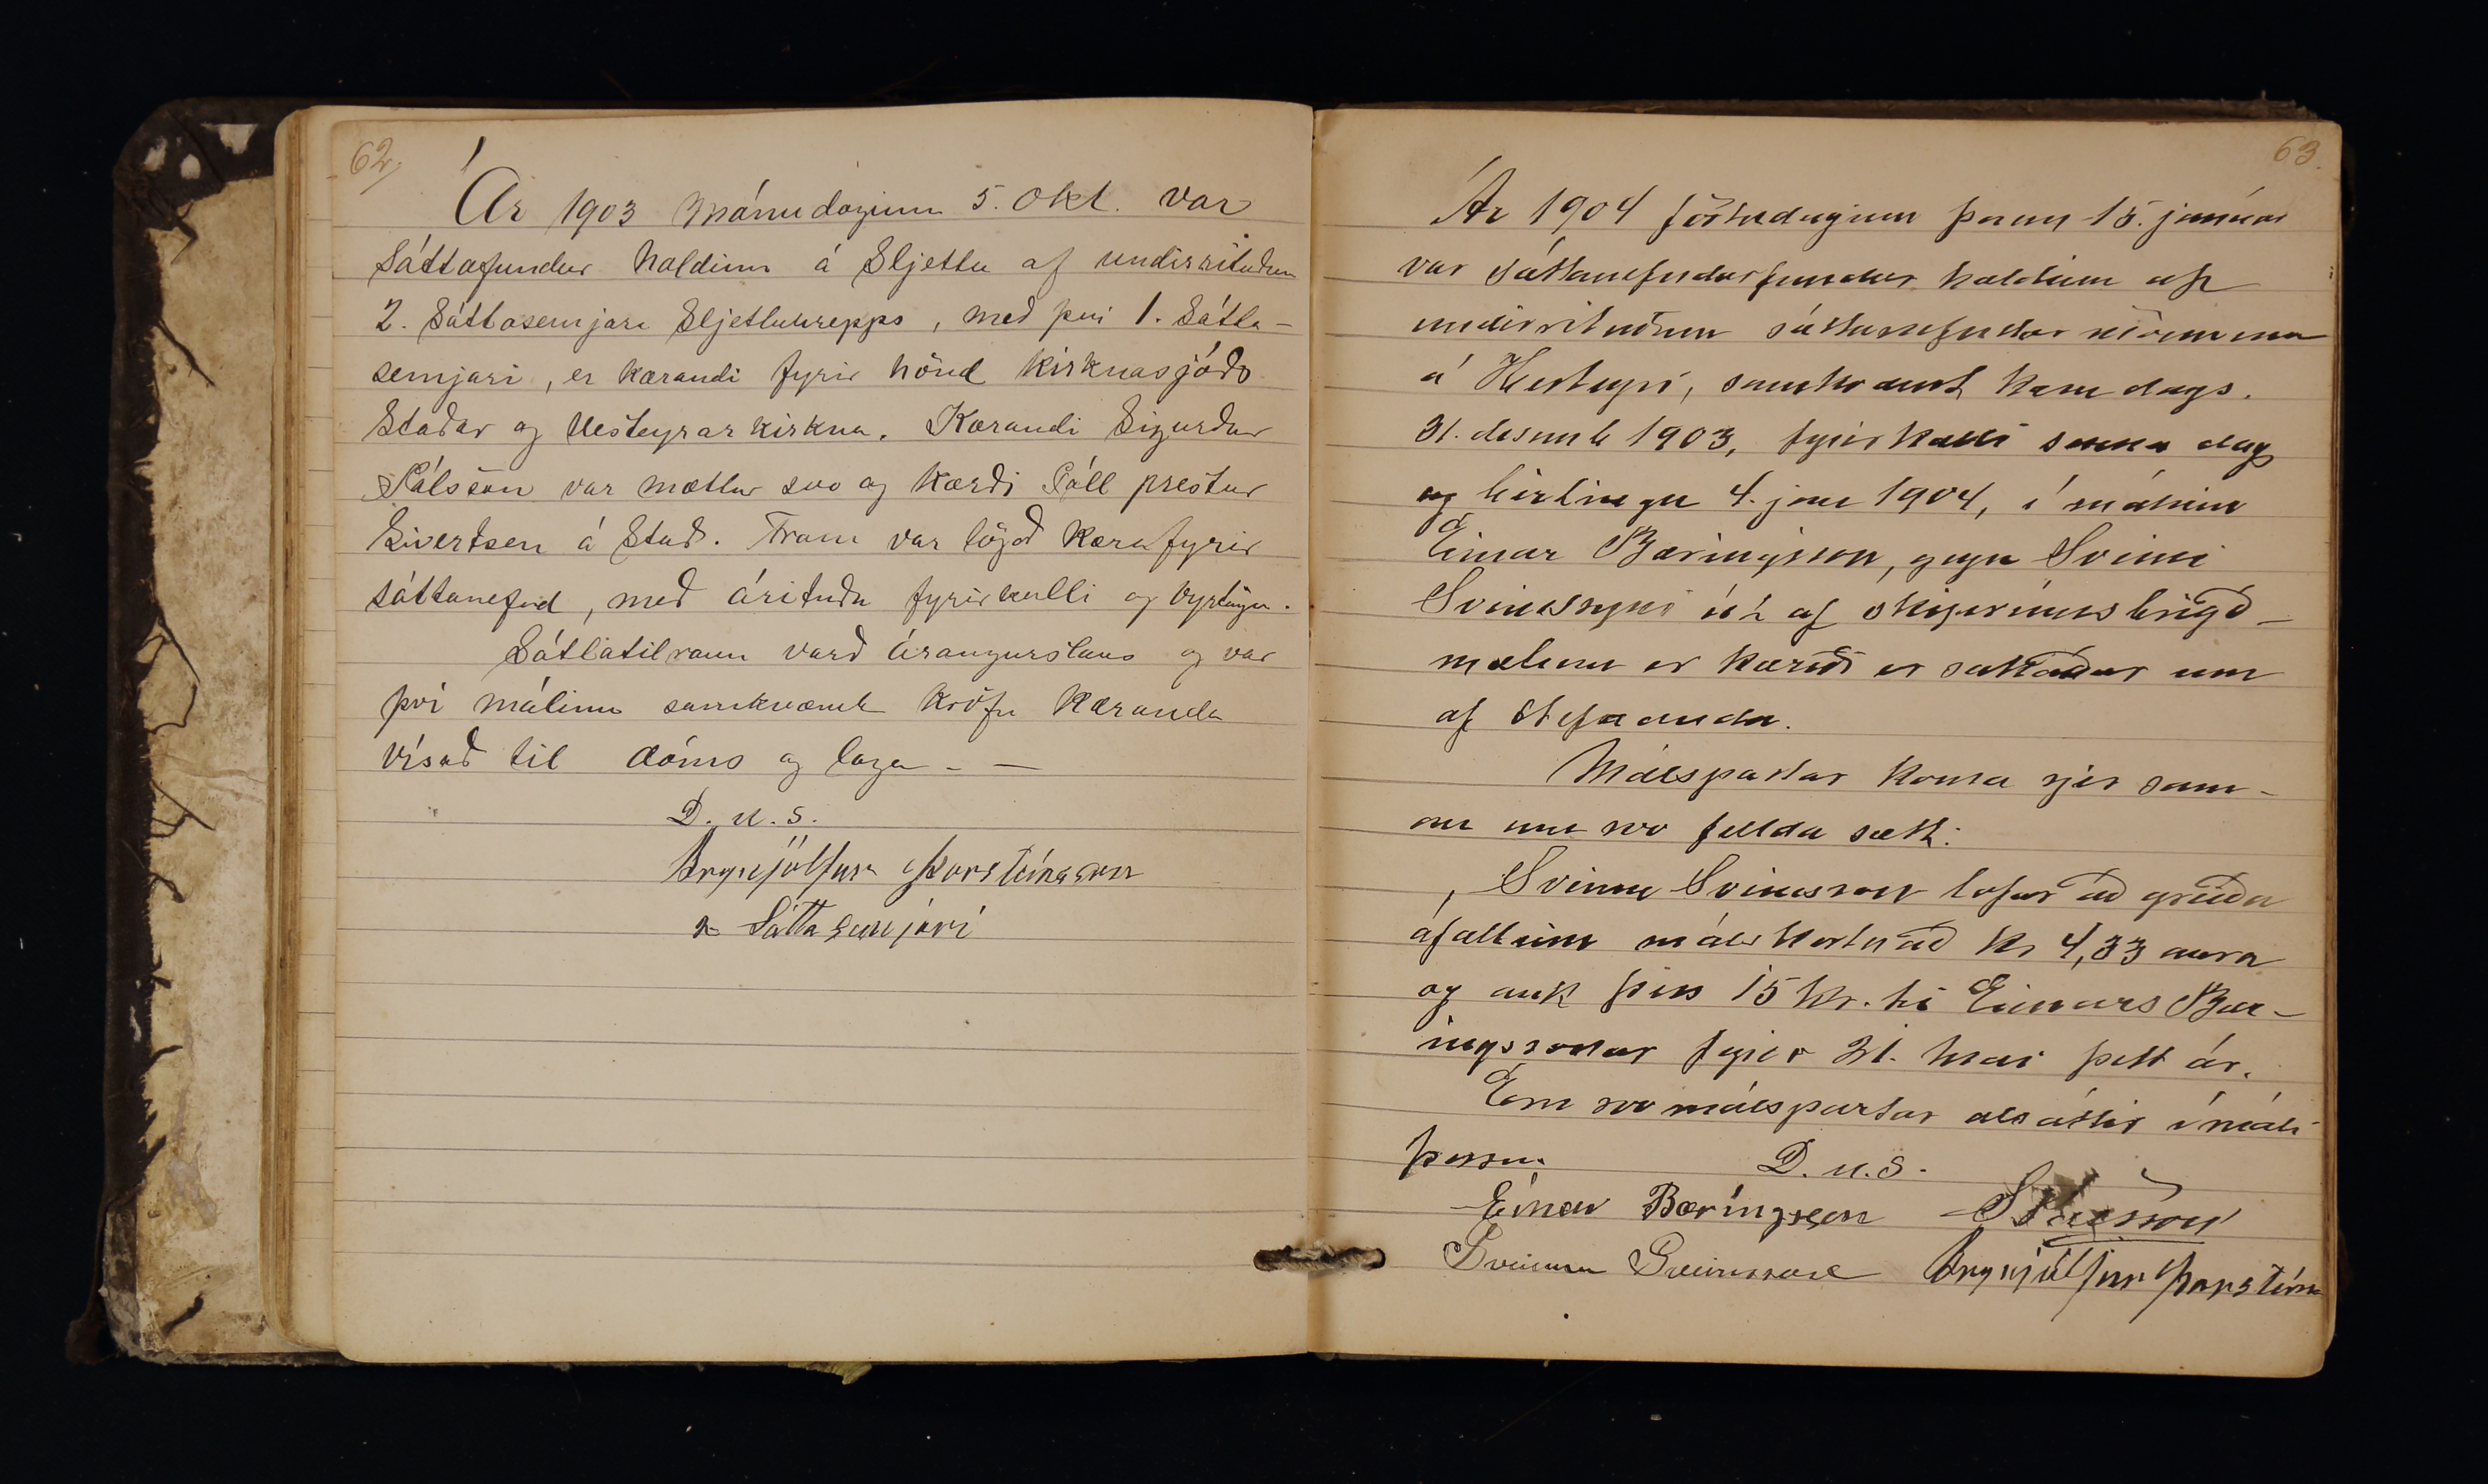 62
Ár 1903 Mánudaginn 5. Okt. var
Sáttafundur haldinn á Sljettu af undirrituðum
2. Sáttasemjara Sljettuhrepps, með því 1. Sátta-
semjari, er kærandi fyrir hönd kirknasjóðs
Staðar og Hesteyrarkirkna. Kærandi Sigurður
Pálsson var mættur svo og kærði Páll prestur
Sivertsen á Stað. Fram var lögð kæra fyrir
sáttanefnd, með árituðu fyrirkalli og byrtingu.
Sáttatilraun varð árangurslaus og var
því málinu samkvæmt kröfu kæranda
vísað til dóms og laga - -
D. u. s.
Brynjólfur Þorsteinsson
2 Sáttasemjari
63
Ár 1904 föstudaginn þann 15. janúar
var sáttanefndarfundur haldinn af
undirrituðum sáttanefndar mönnum
á Hesteyri, samkvæmt kæru dags.
31. desemb 1903, fyrirkalli sama dag
og birtingu 4. jan 1904, í málinu
Einar Bæringsson, gegn Sveini
Sveinssyni út af skiprúmsbrigð-
mælum er kærði er sakaður um
af stefnanda.
Málspartar koma sjer sam-
an um svo fellda sætt:
Sveinn Sveinsson lofar að greiða
áfallinn málskostnað kr 4,33 aura
og auk þess 15 kr. til Einars Bær-
ingssonar fyrir 31. mai þett ár.
Eru svo málspartar alsáttir í máli
þessu.
D. u. S.
Einar Bæringsson S Pálsson
Sveinn Sveinsson Brynjólfur Þorsteins